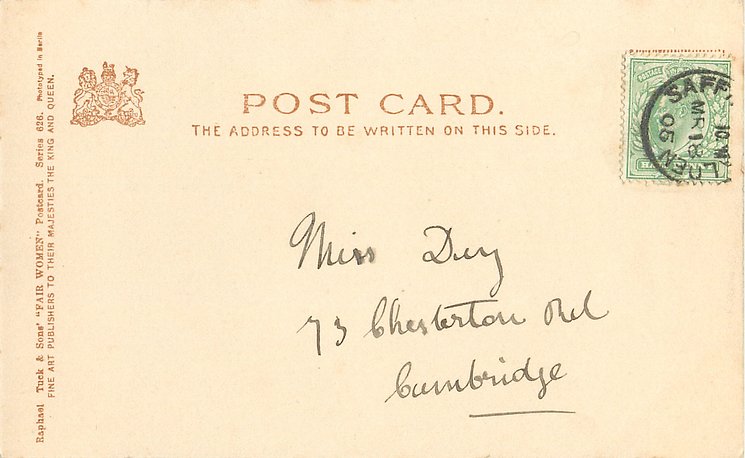 POST CARD.
THE ADDRESS TO BE WRITTEN ON THIS SIDE.
Raphael Tuck & Sons' "FAIR WOMEN" Postcard. Series 626. Phototyped in Berlin
FINE ART PUBLISHERS TO THEIR MAJESTIES THE KING AND QUEEN.
POSTAGE
SAFF
MR 18
05
Miss
73 Chesterton Rd
Cambridge